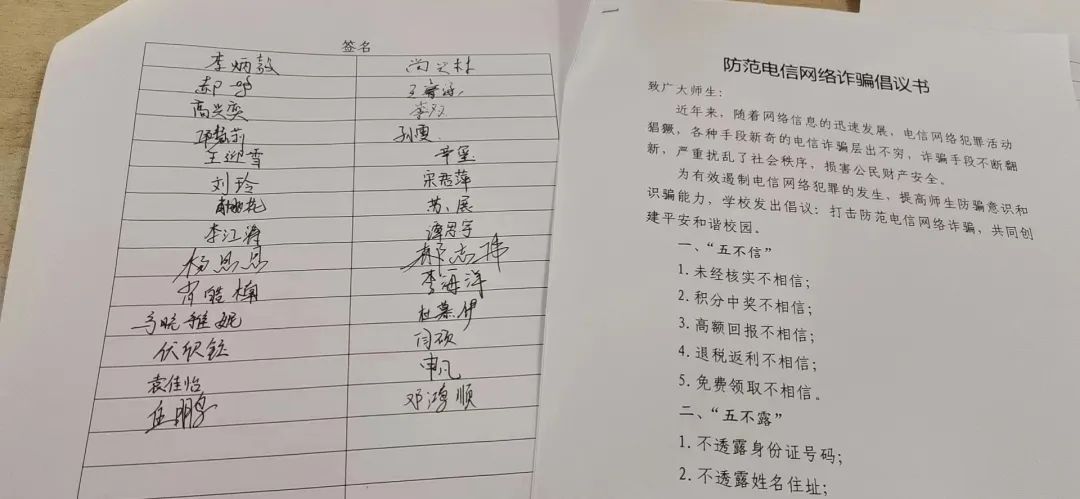 签名
李炳毅 尚兴林
郝一鸣
高兴奕 李双
邓慧莉 孙雯
王迎雪 辛玺
刘玲 宋君萍
苏展
李江涛 谭思宇
杨思思 郝志玮
肖皓楠 李海洋
马晓雅妮 杜慕伊
伏欣钰 闫硕
袁佳怡 申凡
岳明学 邓鸿顺
防范电信网络诈骗倡议书
致广大师生：
近年来，随着网络信息的迅速发展，电信网络犯罪活动
猖獗，各种手段新奇的电信诈骗层出不穷，诈骗手段不断翻
新，严重扰乱了社会秩序，损害公民财产安全。
为有效遏制电信网络犯罪的发生，提高师生防骗意识和
识骗能力，学校发出倡议：打击防范电信网络诈骗，共同创
建平安和谐校园。
一、“五不信”
1. 未经核实不相信；
2. 积分中奖不相信；
3. 高额回报不相信；
4. 退税返利不相信；
5. 免费领取不相信。
二、“五不露”
1. 不透露身份证号码；
2. 不透露姓名住址；